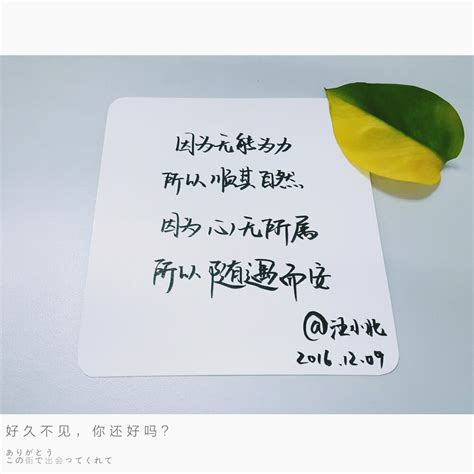 因为无能为力
所以顺其自然
因为心无所属
所以随遇而安
@汪小北
2016.12.09
好久不见，你还好吗？
ありがとう
この街で出会ってくれて